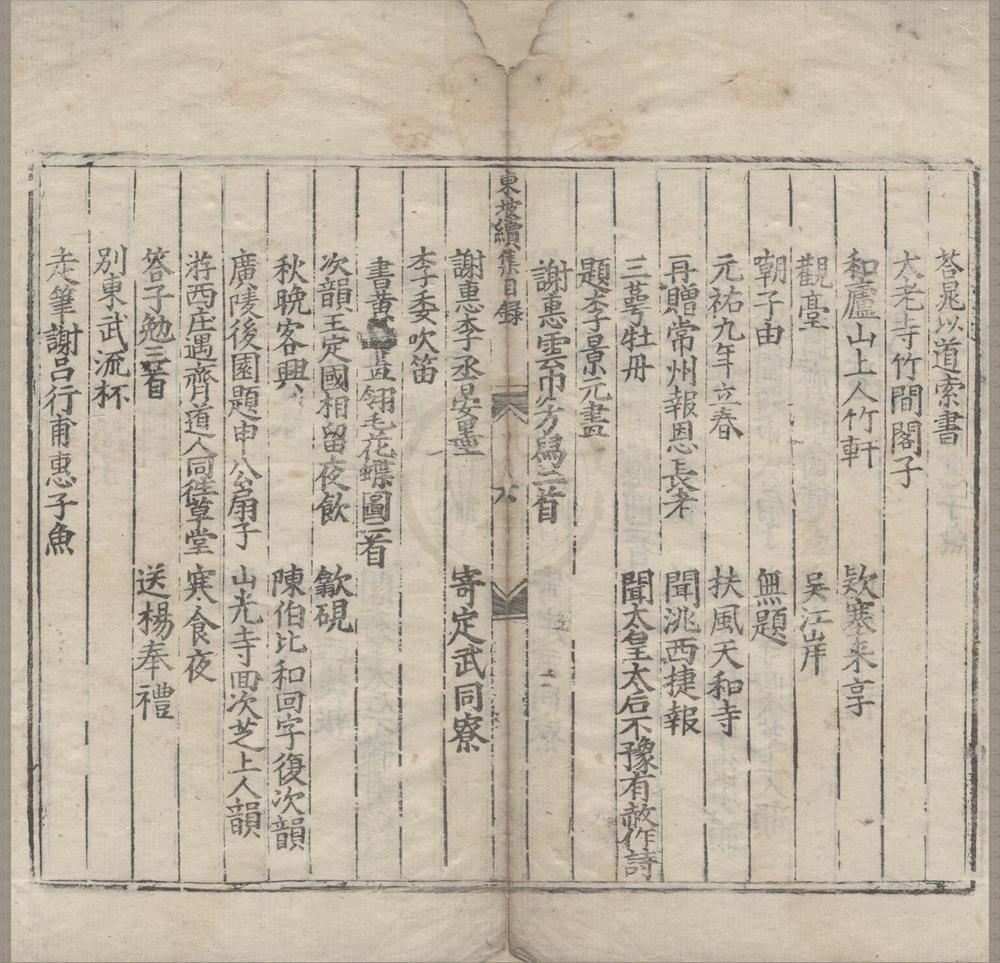 荅晁以道索書
太老寺竹間閣子
和廬山上人竹軒 欵寒來享
觀臺 吴江岸
朝子由 無題
元祐九年立春 扶風天和寺
再贈常州報恩長老 聞洮西捷報
三萼牡丹 聞太皇太后不豫有赦作詩
題李景元畫
謝惠雲巾方舄二首
東坡續集目録
六
謝惠李丞晏墨 寄定武同寮
李委吹笛
書黄筌翎毛花蝶圖二首
次韻王定國相留夜飲 歙硯
秋晚客興 陳伯比和回字復次韻
廣陵後園題申公扇子 山光寺回次芝上人韻
游西庄遇齊道人同徃草堂 寒食夜
答子勉三首 送楊奉禮
別東武流杯
走筆謝吕行甫惠子魚